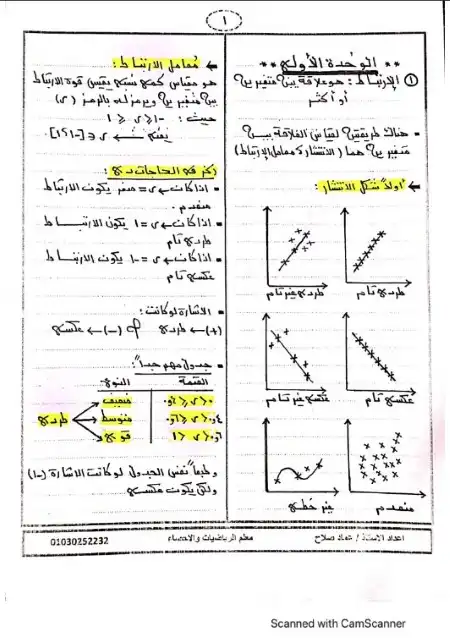 ١
** الوحدة الأولى **
① الارتباط : هو علاقة بين متغيرين
أو أكثر
• هناك طريقتين لقياس العلاقة بين
متغيرين هما ( الانتشار ، معامل الارتباط )
← أولاً شكل الانتشار :
طردى تام
طردى غير تام
عكسى تام
عكسى غير تام
منعدم
غير خطى
← معامل الارتباط :
هو مقياس كمى نسبى يقيس قوة الارتباط
بين متغيرين ويرمز له بالرمز ( ر )
حيث : -١ ≤ ر ≤ ١
يعنى ← ر ∈ [-١،١]
ركز فى الحاجات دى :
• اذا كانت ← ر = صفر يكون الارتباط
منعدم .
• اذا كانت ← ر = ١ يكون الارتباط
طردى تام
• اذا كانت ← ر = -١ يكون الارتباط
عكسى تام
• الاشارة لو كانت :
(+) ← طردى (-) ← عكسى
• جدول مهم جداً :
القيمة النوع
ضعيف
طردى متوسط
قوى
وطبعاً نفس الجدول لو كانت الاشارة (-)
ولكن يكون عكسى
اعداد الاستاذ / عماد صلاح
معلم الرياضيات والاحصاء
01030252232
Scanned with CamScanner